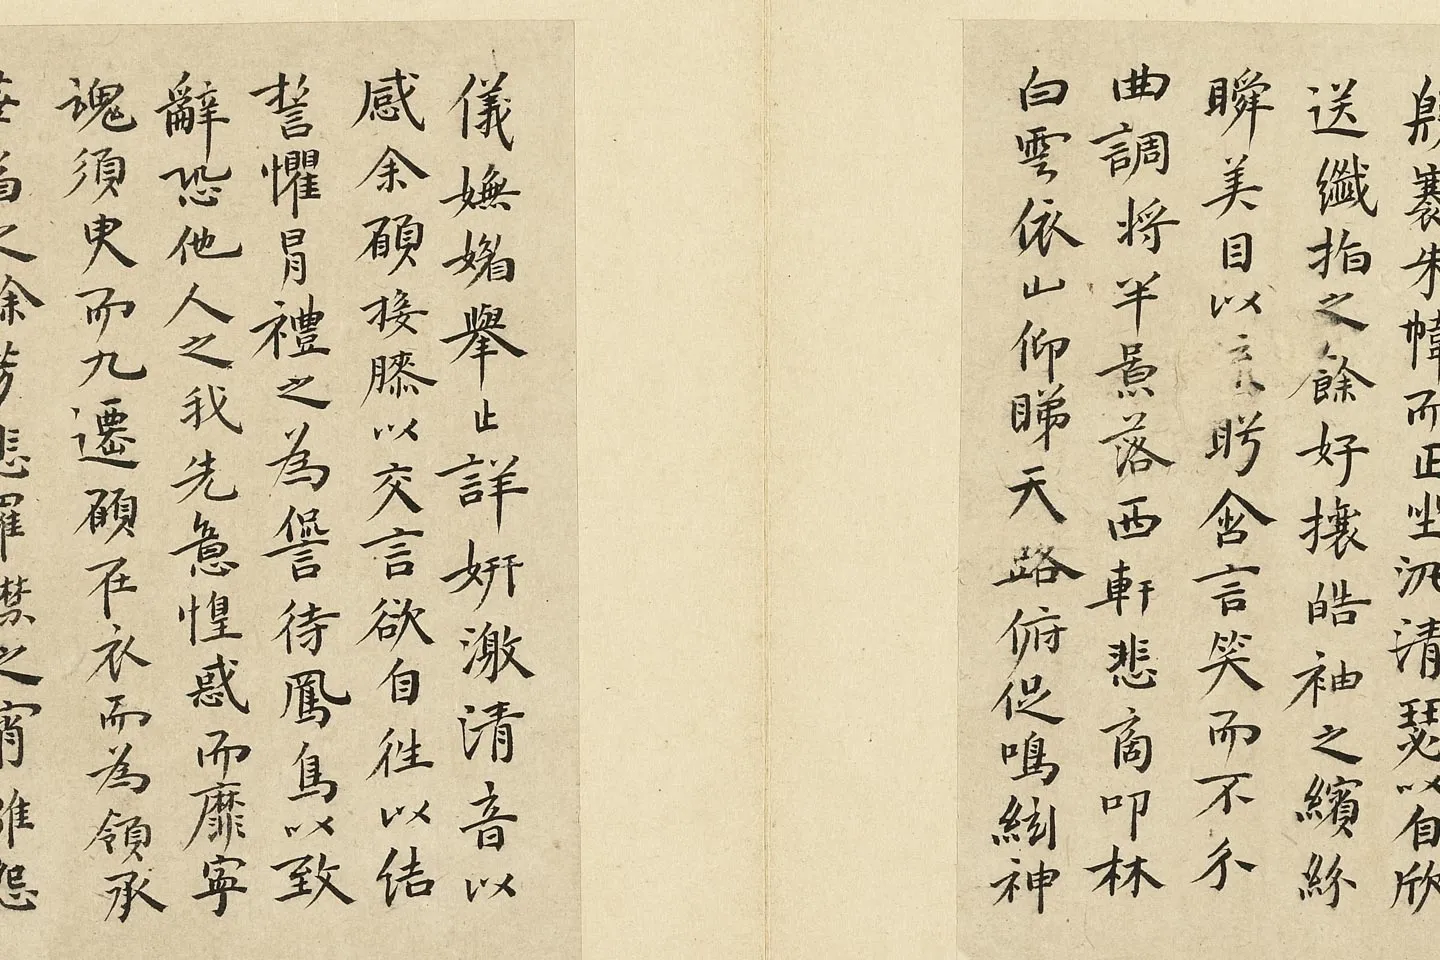 殷褰朱幃而正坐汎清瑟以自欣
送纖指之餘好攘皓袖之繽紛
瞬美目以流眄含言笑而不分
曲調將半景落西軒悲商叩林
白雲依山仰睇天路俯促鳴絃神
儀嫵媚舉止詳妍激清音以
感余願接膝以交言欲自往以結
誓懼冒禮之為諐待鳳鳥以致
辭恐他人之我先意惶惑而靡寧
魂須臾而九遷願在衣而為領承
華首之餘芳悲羅襟之宵離怨